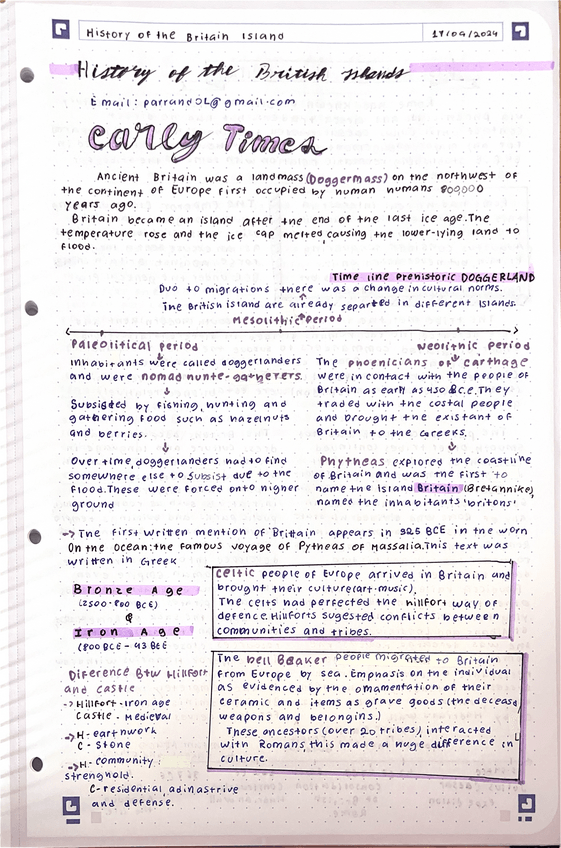 History of the Britain Island
17/09/2024
History of the British Islands
Email: parrandOL@gmail.com
Early Times
Ancient Britain was a landmass (Doggermass) on the northwest of
the continent of Europe first occupied by human humans 800,000
years ago.
Britain became an island after the end of the last ice age. The
temperature rose and the ice cap melted, causing the lower-lying land to
flood.
Time line Prehistoric DOGGERLAND
Due to migrations there was a change in cultural norms.
The British island are already separted in different Islands.
Mesolithic Period
Paleolitical Period
Inhabitants were called doggerlanders
and were nomad hunte-gatherers.
Subsisted by fishing, hunting and
gathering food such as hazelnuts
and berries.
Over time, doggerlanders had to find
somewhere else to subsist due to the
flood. These were forced onto higher
ground
Neolithic Period
The phoenicians of carthage
were in contact with the people of
Britain as early as 450 B.C.E. They
traded with the costal people
and brought the existant of
Britain to the Greeks.
Phytheas explored the coastline
of Britain and was the first to
name the Island Britain (Bretannike),
named the inhabitants 'britons'
-> The first written mention of Brittain appears in 325 BCE in the worn
On the Ocean: the famous voyage of Pytheas of Massalia. This text was
written in Greek
Bronze Age
(2500-800 BCE)
&
Iron Age
(800 BCE - 43 BCE
Diference Btw Hillfort
and castle
-> Hillfort - Iron age
Castle - Medieval
-> H- earthwork
C - Stone
-> H- community
strenghold.
C- residential, adinastrive
and defense.
Celtic people of Europe arrived in Britain and
brought their culture (art-music),
The celts had perfected the hillfort way of
defence. Hillforts sugested conflicts between
communities and tribes.
The bell Beaker people migrated to Britain
from Europe by sea. Emphasis on the individual
as evidenced by the ornamentation of their
ceramic and items as grave goods (the decease
weapons and belongins.)
These ancestors (over 20 tribes), interacted
with Romans, this made a huge difference in
culture.